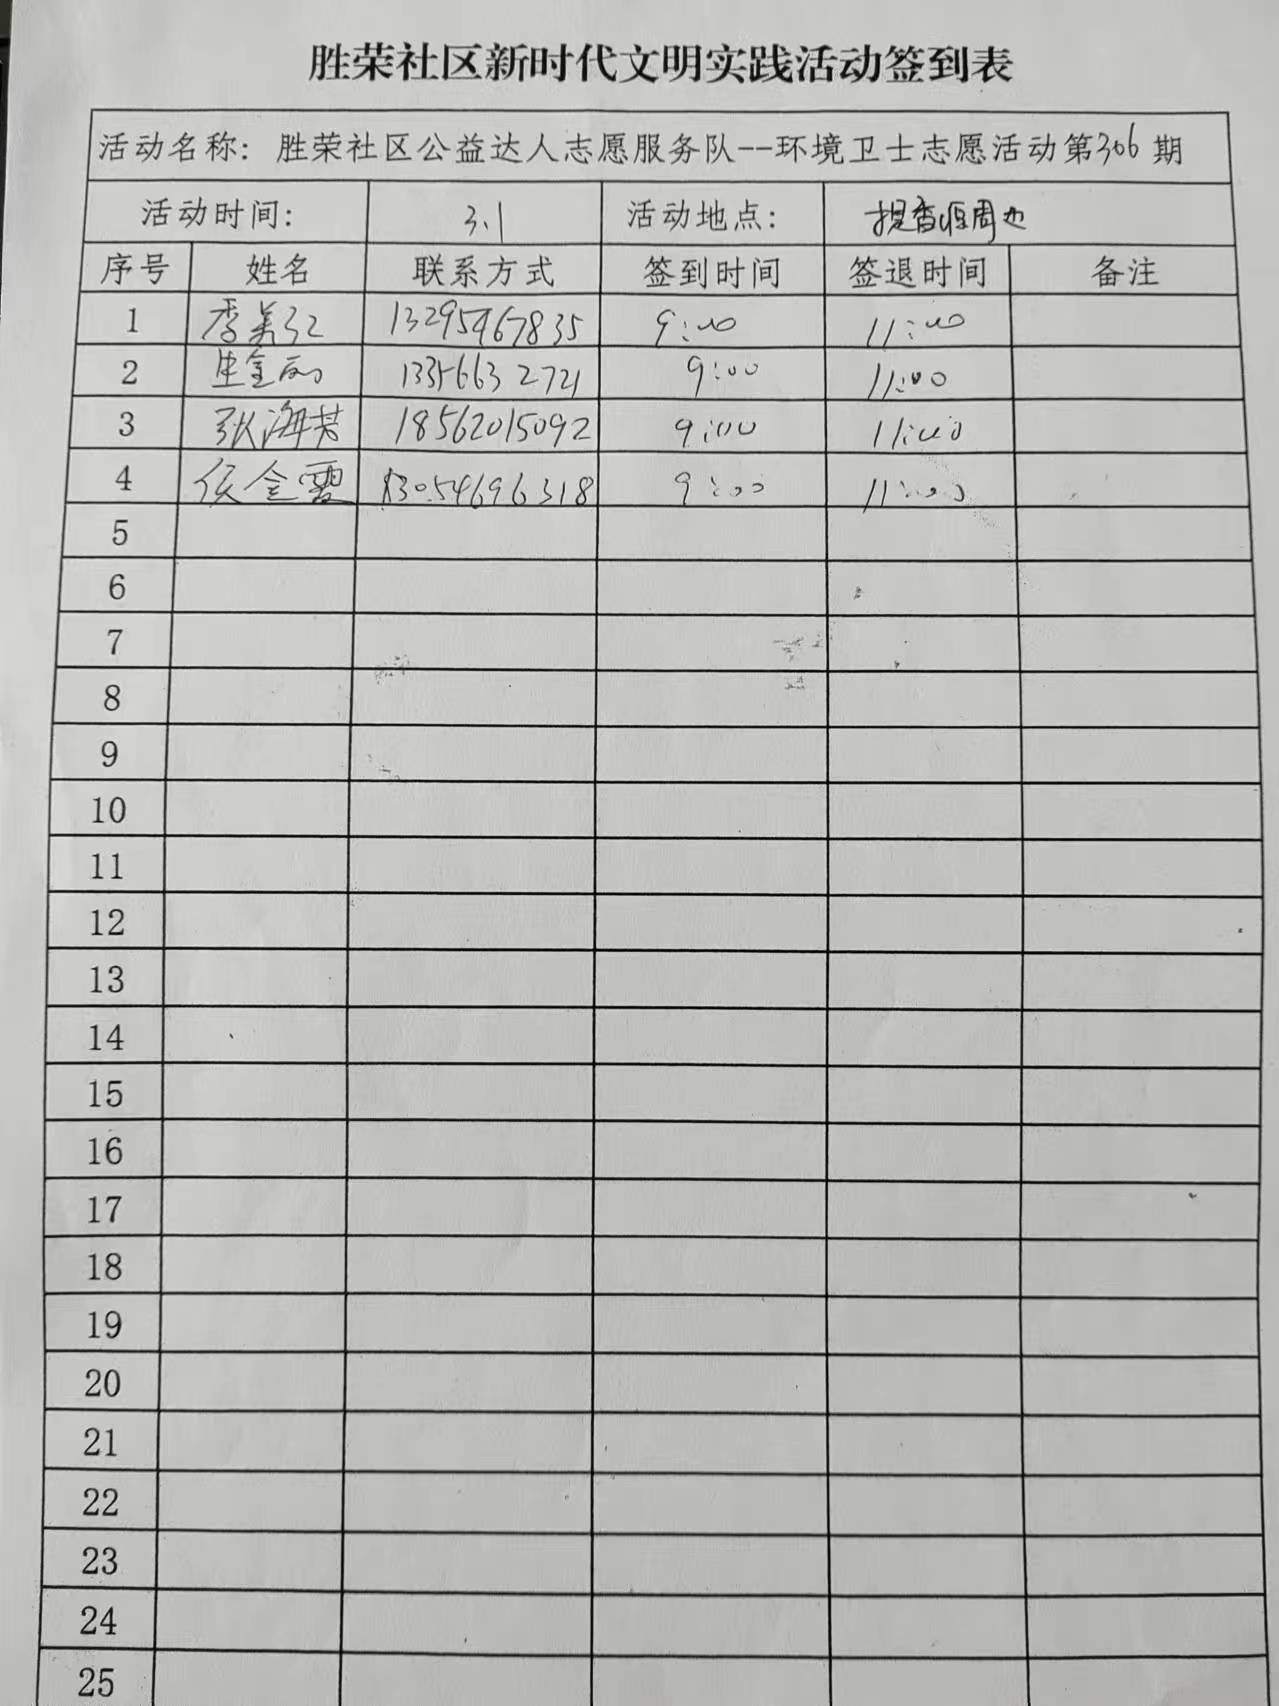 胜荣社区新时代文明实践活动签到表
活动名称：胜荣社区公益达人志愿服务队--环境卫士志愿活动第306期
活动时间： 3.1 活动地点： 提香郡周边
序号 姓名 联系方式 签到时间 签退时间 备注
1 李美红 13295467835 9:00 11:00
2 金丽 13356632721 9:00 11:00
3 张海芳 18562015092 9:00 11:00
4 侯金霞 13054696318 9:00 11:00
5
6
7
8
9
10
11
12
13
14
15
16
17
18
19
20
21
22
23
24
25